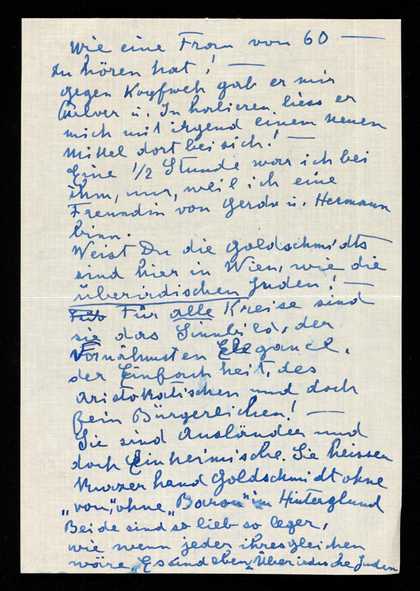 Wie eine Frau von 60 —
zu hören hat! —
gegen Kopfweh gab er mir
Pulver u. Inhalieren liess er
mich mit irgend einem neuen
Mittel dort bei sich! —
Eine 1/2 Stunde war ich bei
ihm, nur, weil ich eine
Freundin von Gerda u. Hermann
binn.
Weist Du die Goldschmidts
sind hier in Wien, wie die
überirdischen Juden! —
Für alle Kreise sind
sie das Sinnbild, der
Vornähmsten Eleganz,
der Einfachheit, des
aristokratischen und doch
fein Bürgerlichen! —
Sie sind Ausländer und
doch Einheimische. Sie heissen
kurzer hand Goldschmidt ohne
„von“, ohne „Baron“ im Hintergrund
Beide sind so lieb so leger,
wie wenn jeder ihresgleichen
wäre „Es sind eben, Überirdische Juden